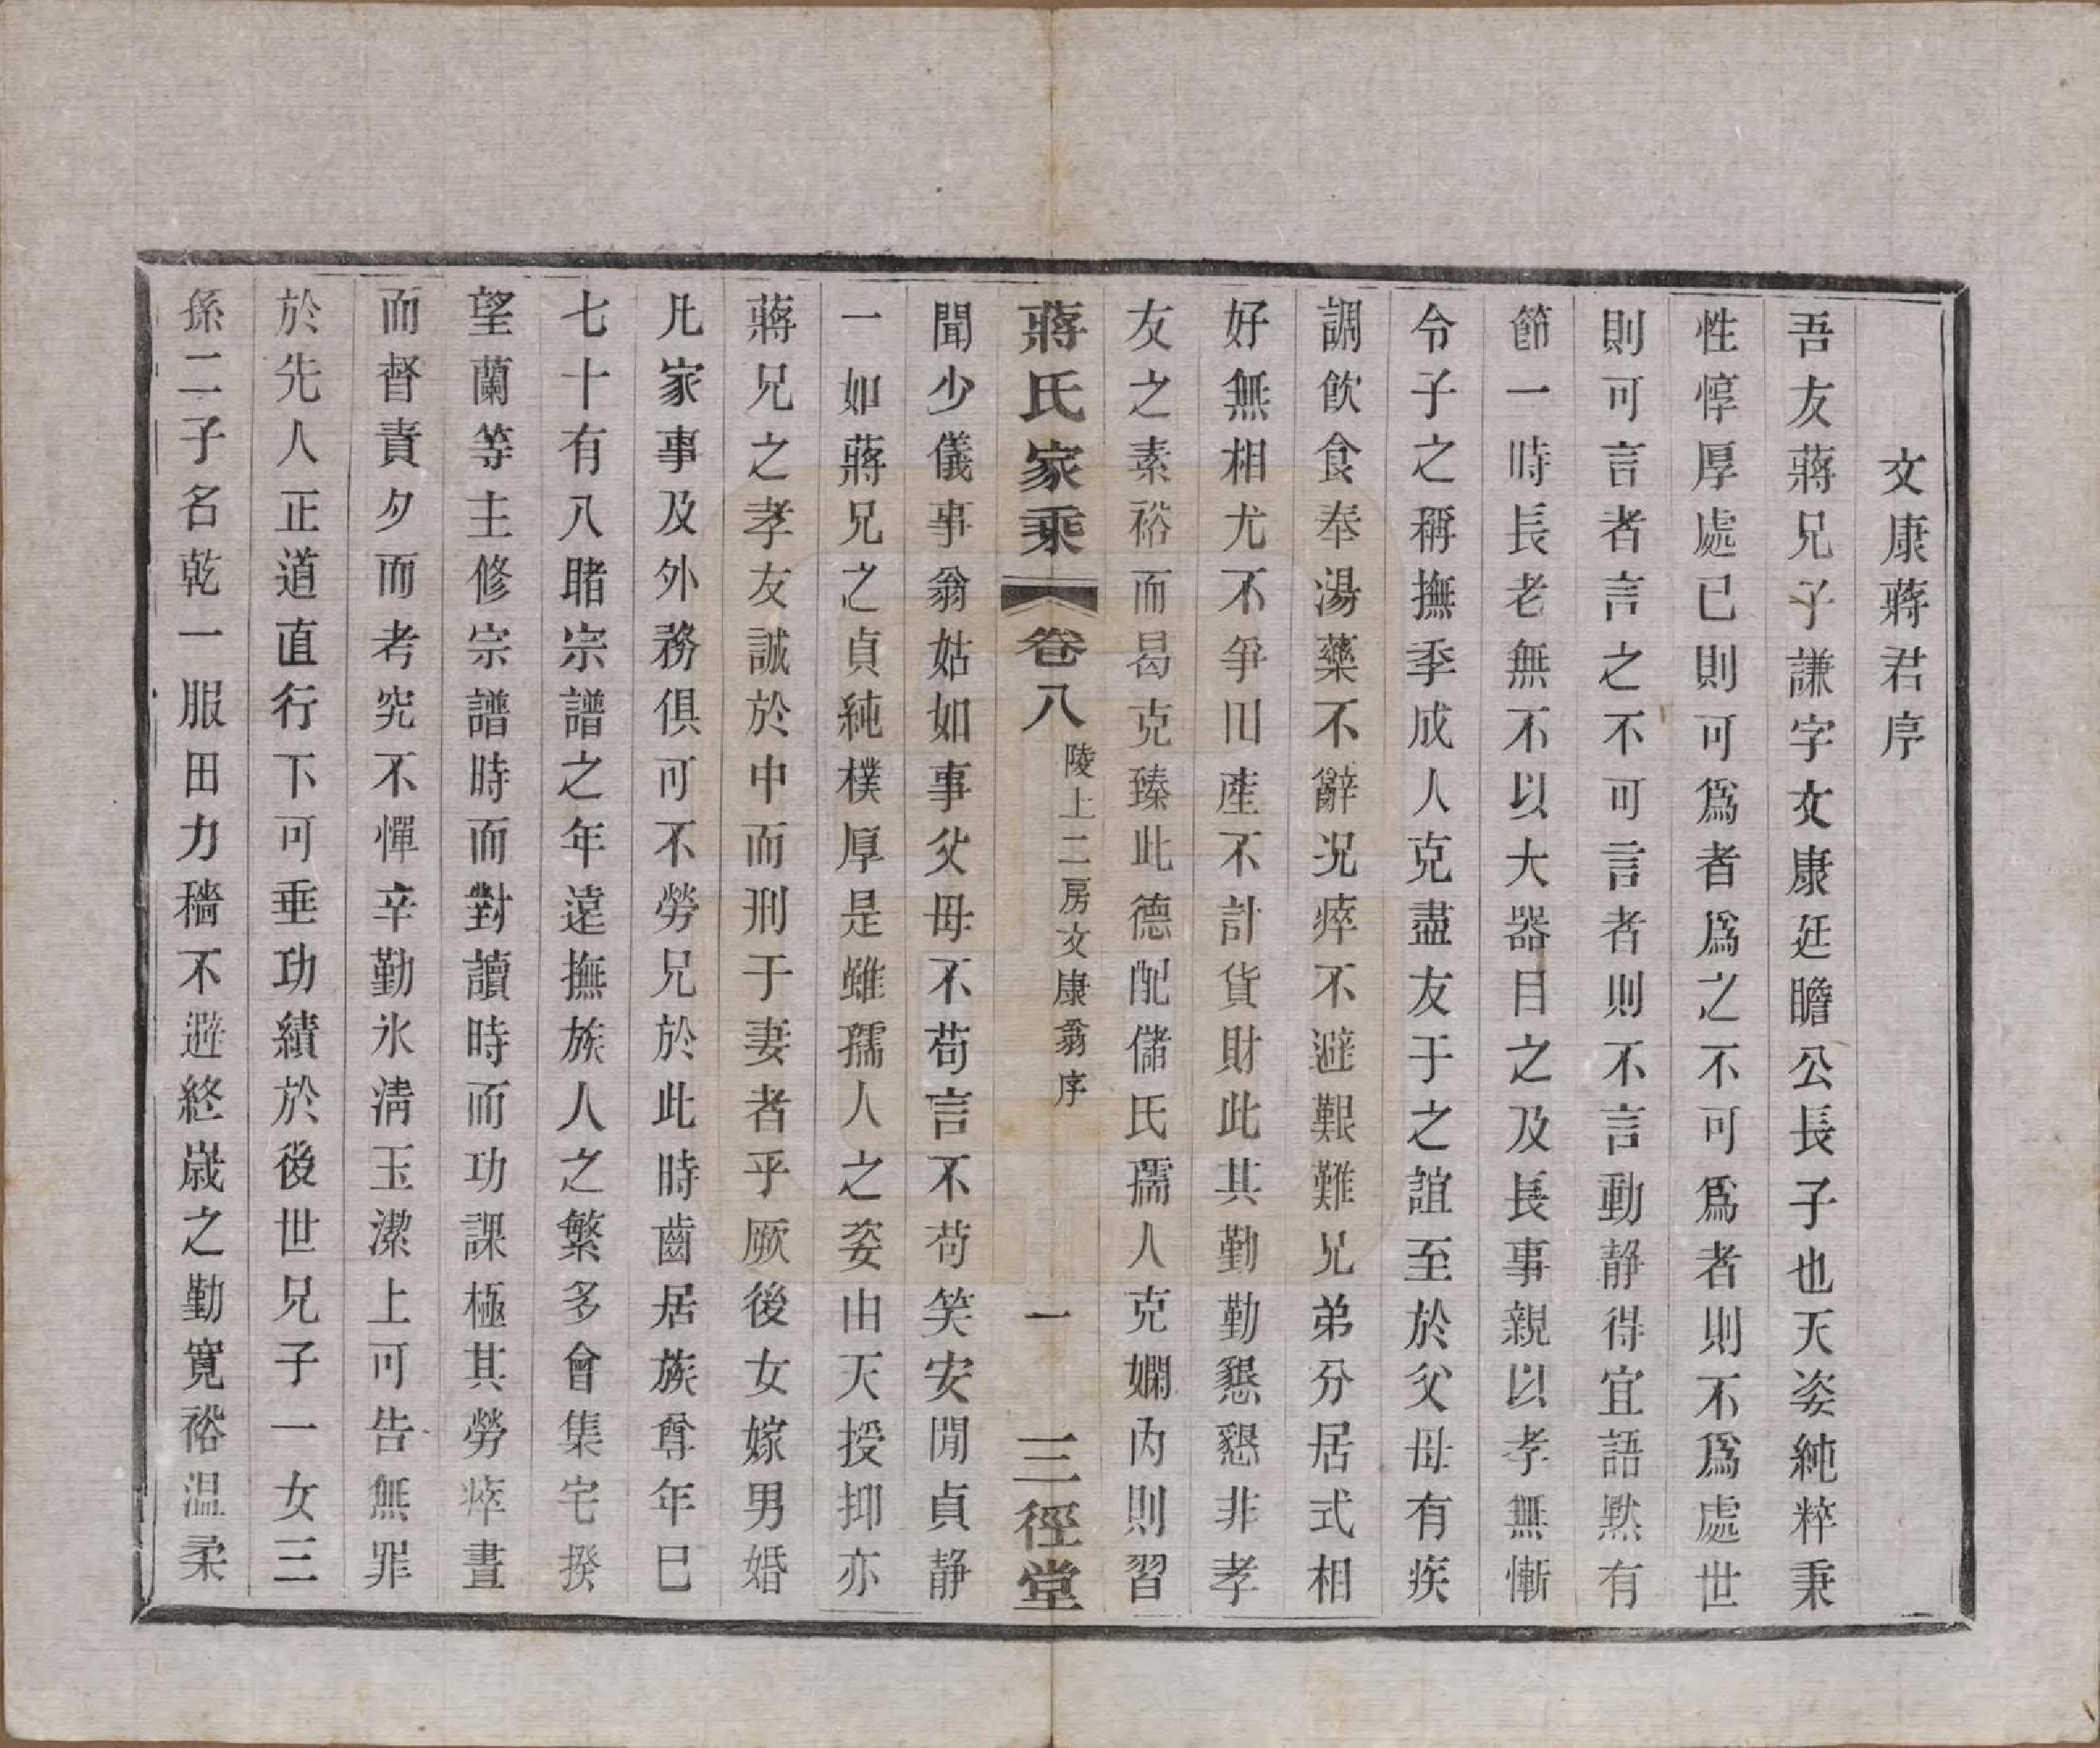 文康蔣君序
吾友蔣兄子謙字文康廷瞻公長子也天姿純粹秉
性惇厚處已則可爲者爲之不可爲者則不爲處世
則可言者言之不可言者則不言動静得宜語黙有
節一時長老無不以大器目之及長事親以孝無慚
令子之稱撫季成人克盡友于之誼至於父母有疾
調飲食奉湯藥不辭况瘁不避艱難兄弟分居式相
好無相尤不爭旧產不計貨財此其勤勤懇懇非孝
友之素裕而曷克臻此德配儲氏孺人克嫻内則習
蔣氏家乘 卷八 陵上二房文康翁序 一 三徑堂
聞少儀事翁姑如事父母不苟言不苟笑安閒貞静
一如蔣兄之貞純樸厚是雖孺人之姿由天授抑亦
蔣兄之孝友誠於中而刑于妻者乎厥後女嫁男婚
凡家事及外務俱可不勞兄於此時齒居族尊年巳
七十有八睹宗譜之年遠撫族人之繁多會集宅揆
望蘭等主修宗譜時而對讀時而功課極其勞瘁晝
而督責夕而考究不憚辛勤氷清玉潔上可告無罪
於先人正道直行下可垂功績於後世兄子一女三
孫二子名乾一服田力穡不避終歲之勤寬裕温柔